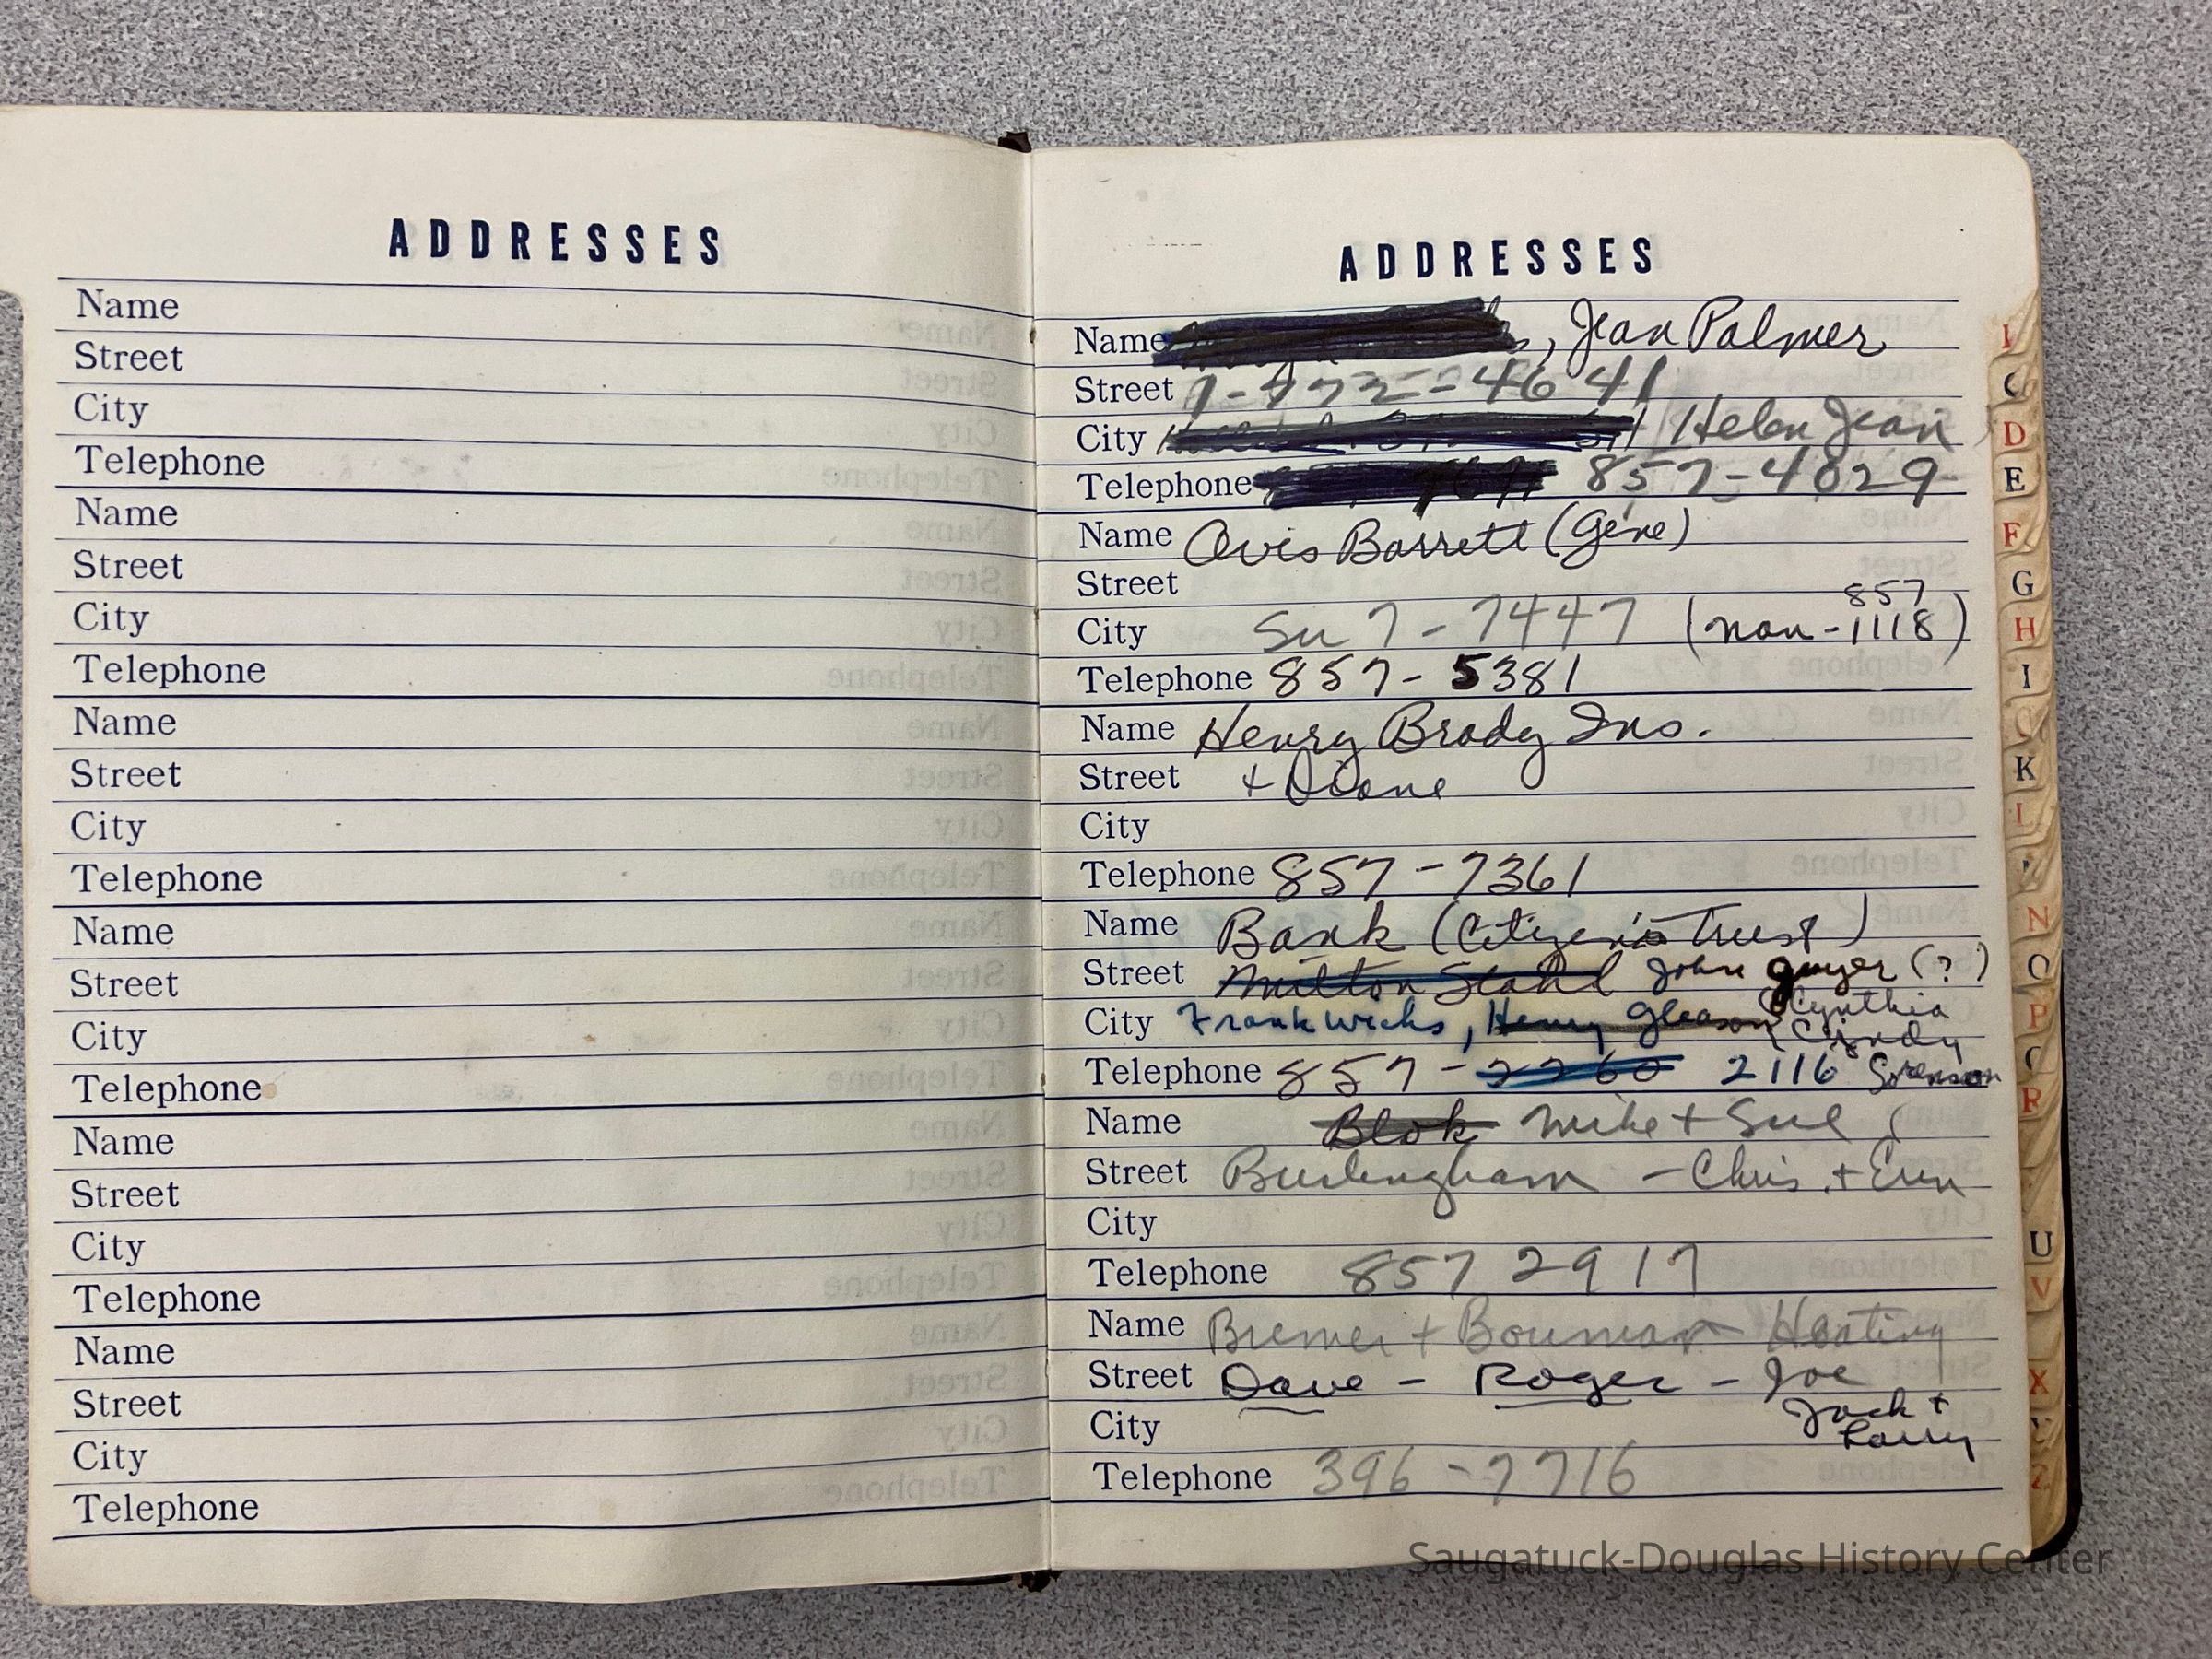 ADDRESSES
Name
Street
City
Telephone
Name
Street
City
Telephone
Name
Street
City
Telephone
Name
Street
City
Telephone
Name
Street
City
Telephone
Name
Street
City
Telephone
ADDRESSES
Name , Jean Palmer
Street 1-772-4641
City Helen Jean
Telephone 857-4029
Name Avis Barrett (Gene)
Street
857
City Su 7-7447 (nan-1118)
Telephone 857-5381
Name Henry Brady Ins.
Street + Diane
City
Telephone 857-7361
Name Bank (Citizen's Trust)
Street Milton Stahl John Guyer (?)
Cynthia
City Frank Wicks, Henry Gleason Cindy
Telephone 857-2260 2116 Sorenson
Name Blok Mike + Sue
Street Burlingham - Chris + Erin
City
Telephone 857 2917
Name Bremer + Bouman Heating
Street Dave - Roger - Joe
City Jack +
Larry
Telephone 396-7716
C
D
E
F
G
H
I
K
L
N
O
P
R
U
V
X
Z
Saugatuck-Douglas History Center